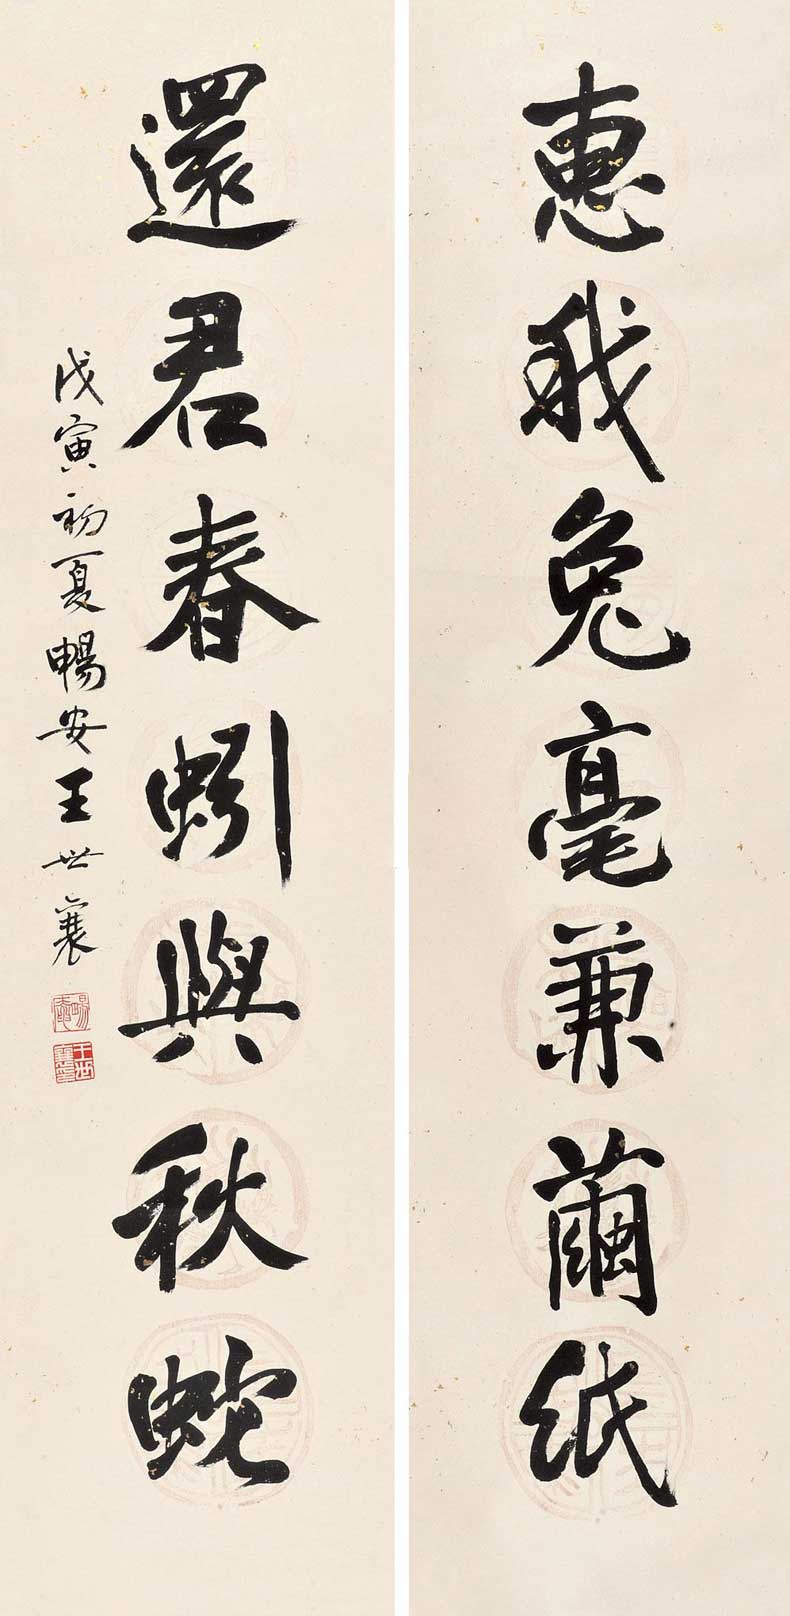 惠我兔毫兼繭紙
還君春蚓與秋蛇
戊寅初夏暢安王世襄
暢安
王世襄印